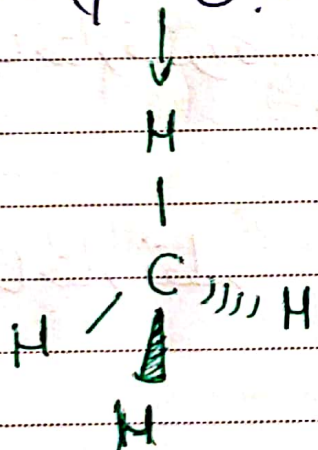 H
C
H H
H